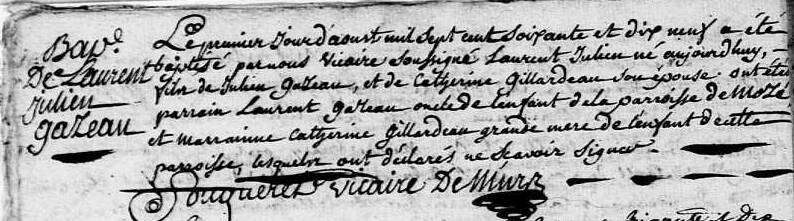 Bap.
De Laurent
Julien
gazeau
Le premier Jour d'aoust mil sept cent soixante et dix neuf a été
baptesé par nous vicaire soussigné Laurent Julien né aujourdhuy,
fils de Julien gazeau, et de Catherine Gillardeau son epouse ont etés
parrain Laurent gazeau oncle de l'enfant de la parroisse de Mozé,
et marrainne Catherine Gillardeau grande mere de l'enfant de cette
parroisse, lesquels ont déclarés ne scavoir signer
vicaire De Murs